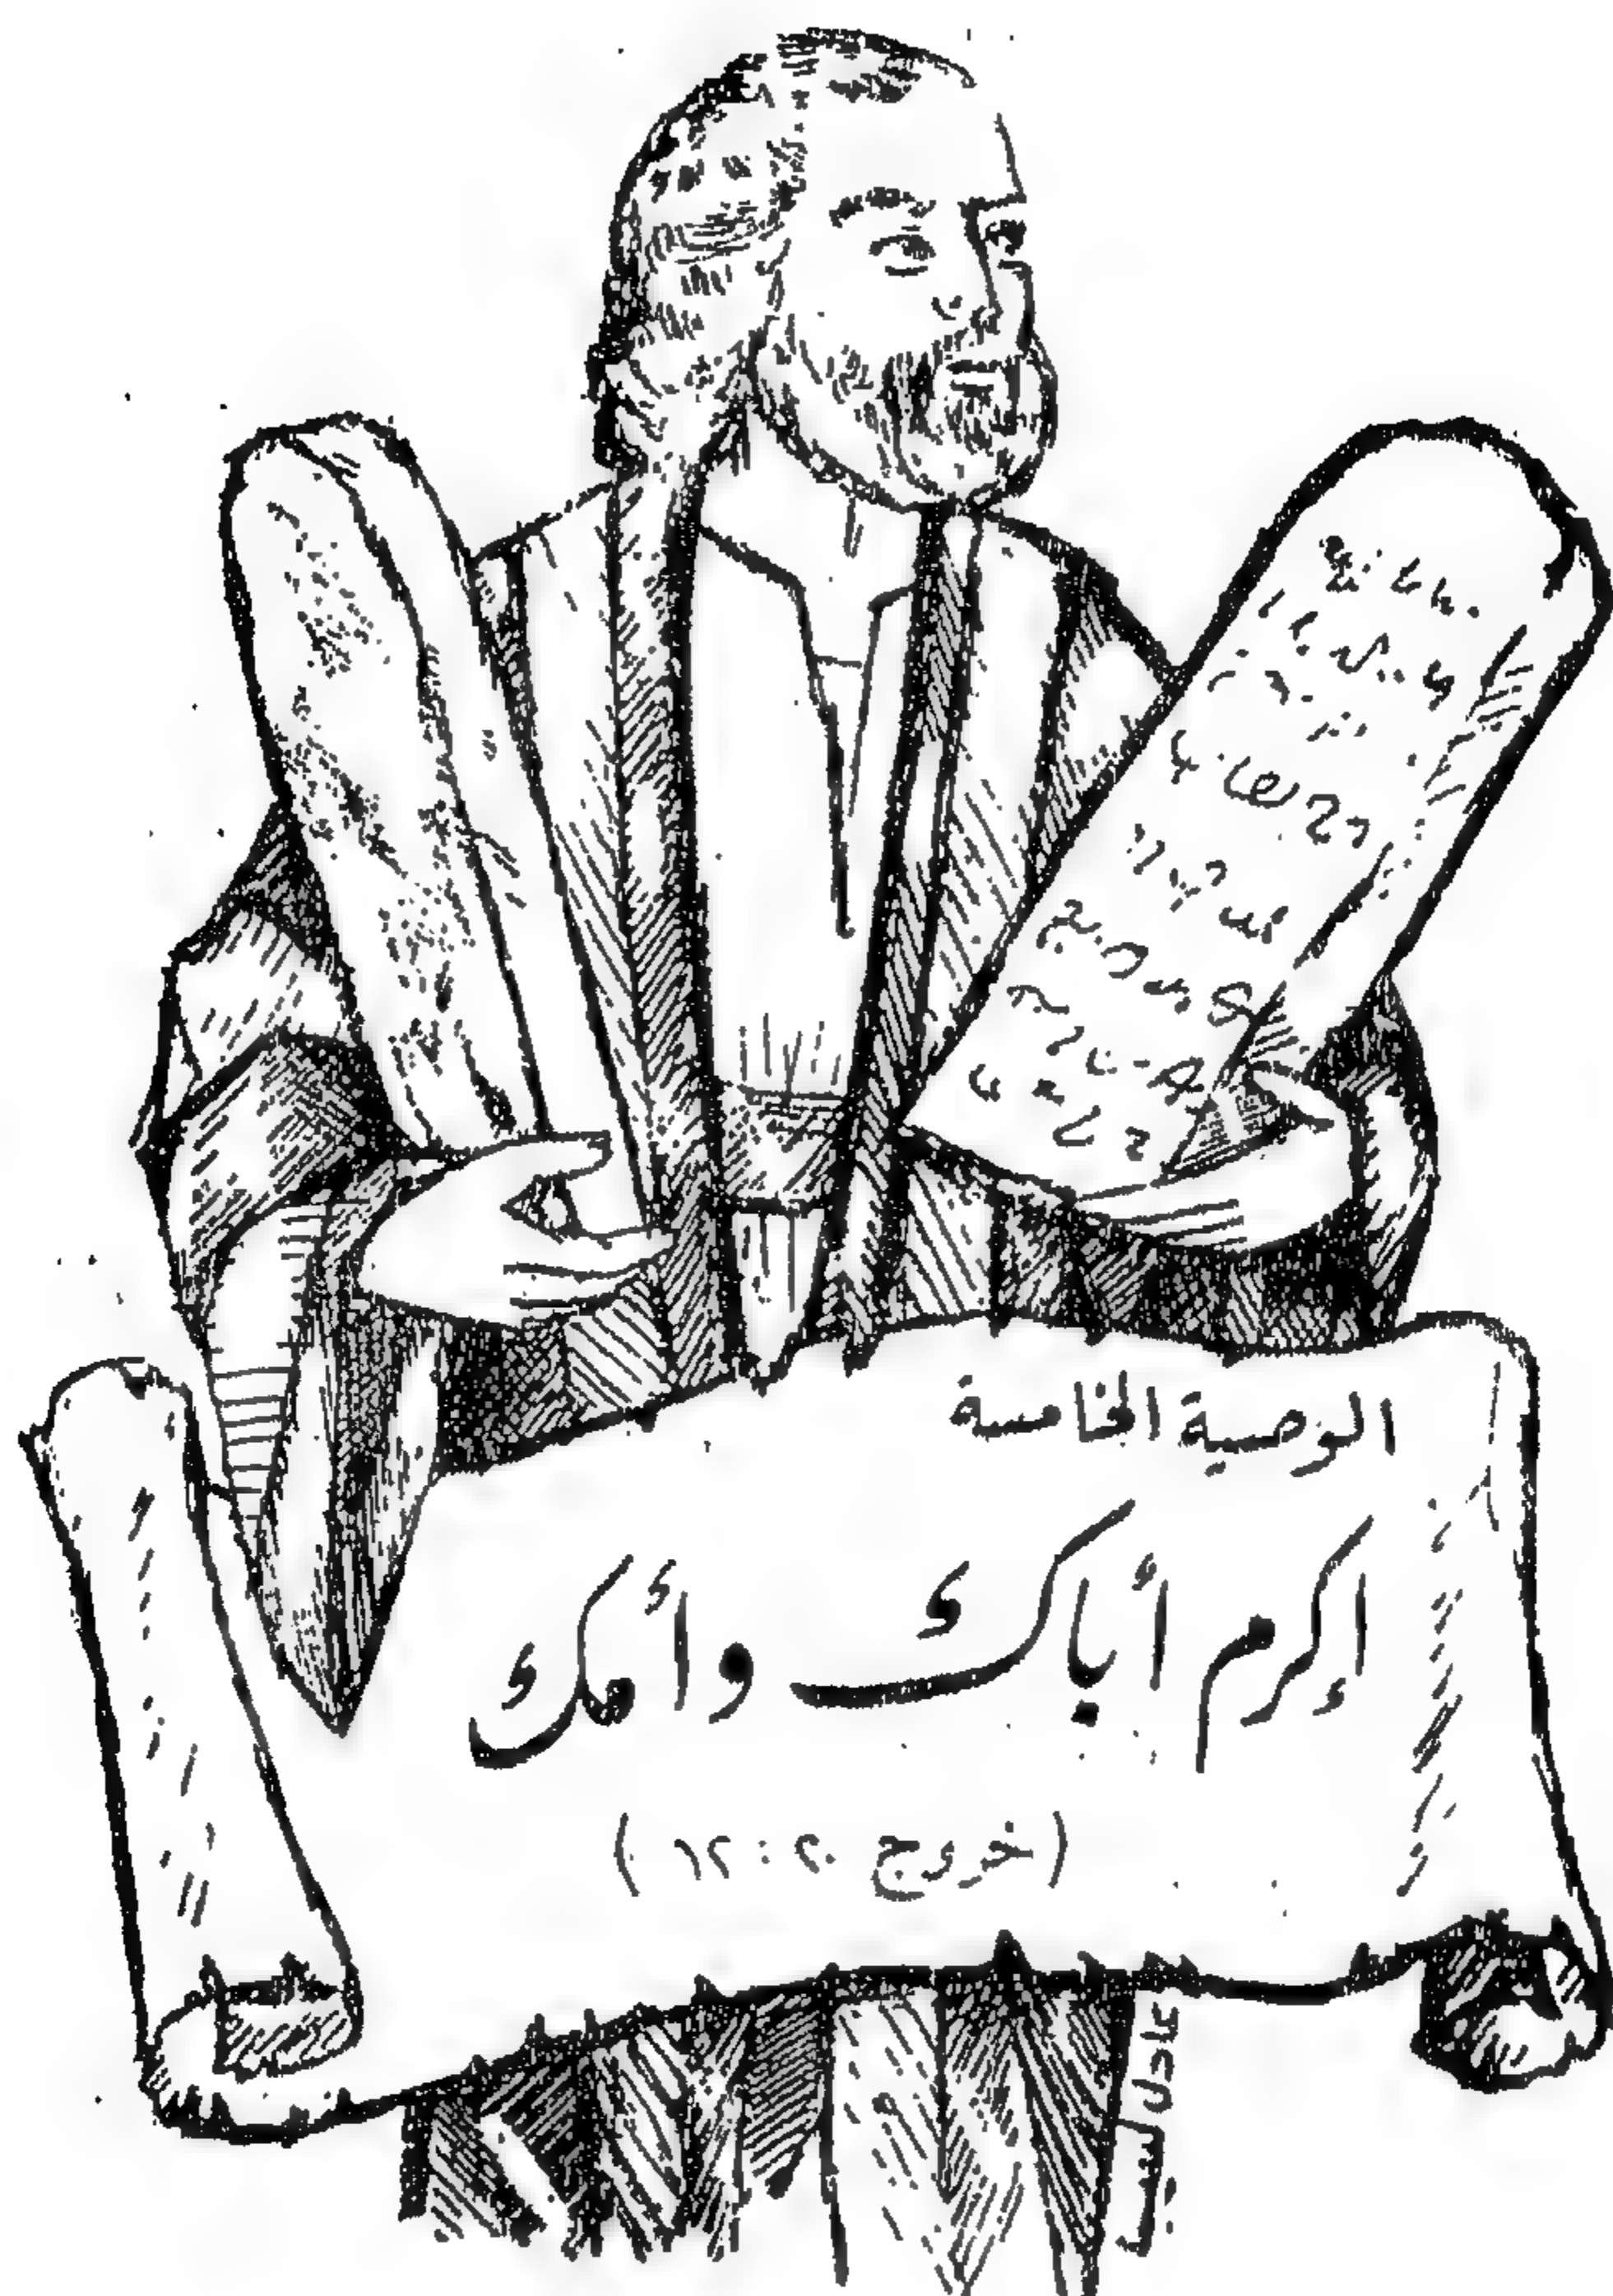 الوصية الخامسة
إكرم أباك وأمك
(خروج ٢٠ : ١٢)
عادل